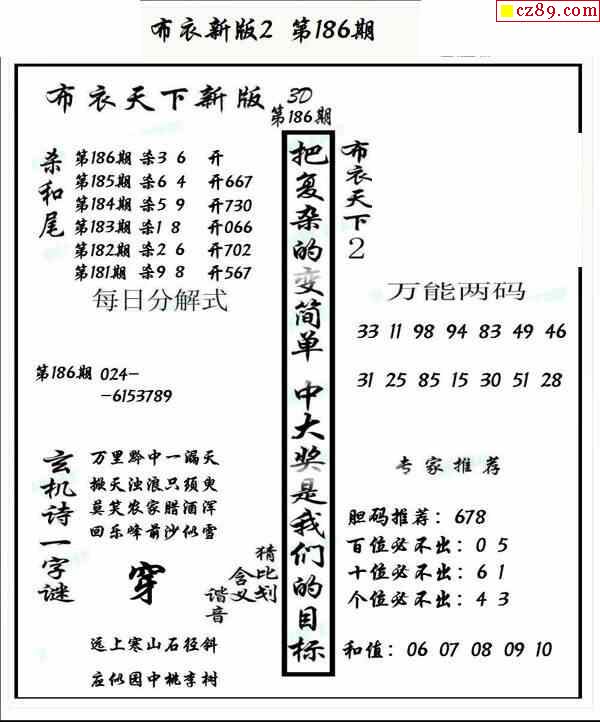 cz89.com
布衣新版2 第186期
布衣天下新版 3D
第186期
杀和尾
第186期 杀3 6 开
第185期 杀6 4 开667
第184期 杀5 9 开730
第183期 杀1 8 开066
第182期 杀2 6 开702
第181期 杀9 8 开567
每日分解式
第186期 024-
-6153789
玄机诗一字谜
万里黔中一漏天
掀天浊浪只须臾
莫笑农家腊酒浑
回乐峰前沙似雪
穿
猜比划
含义
谐音
远上寒山石径斜
应似园中桃李树
把复杂的变简单 中大奖是我们的目标
布衣天下2
万能两码
33 11 98 94 83 49 46
31 25 85 15 30 51 28
专家推荐
胆码推荐：678
百位必不出：0 5
十位必不出：6 1
个位必不出：4 3
和值：06 07 08 09 10